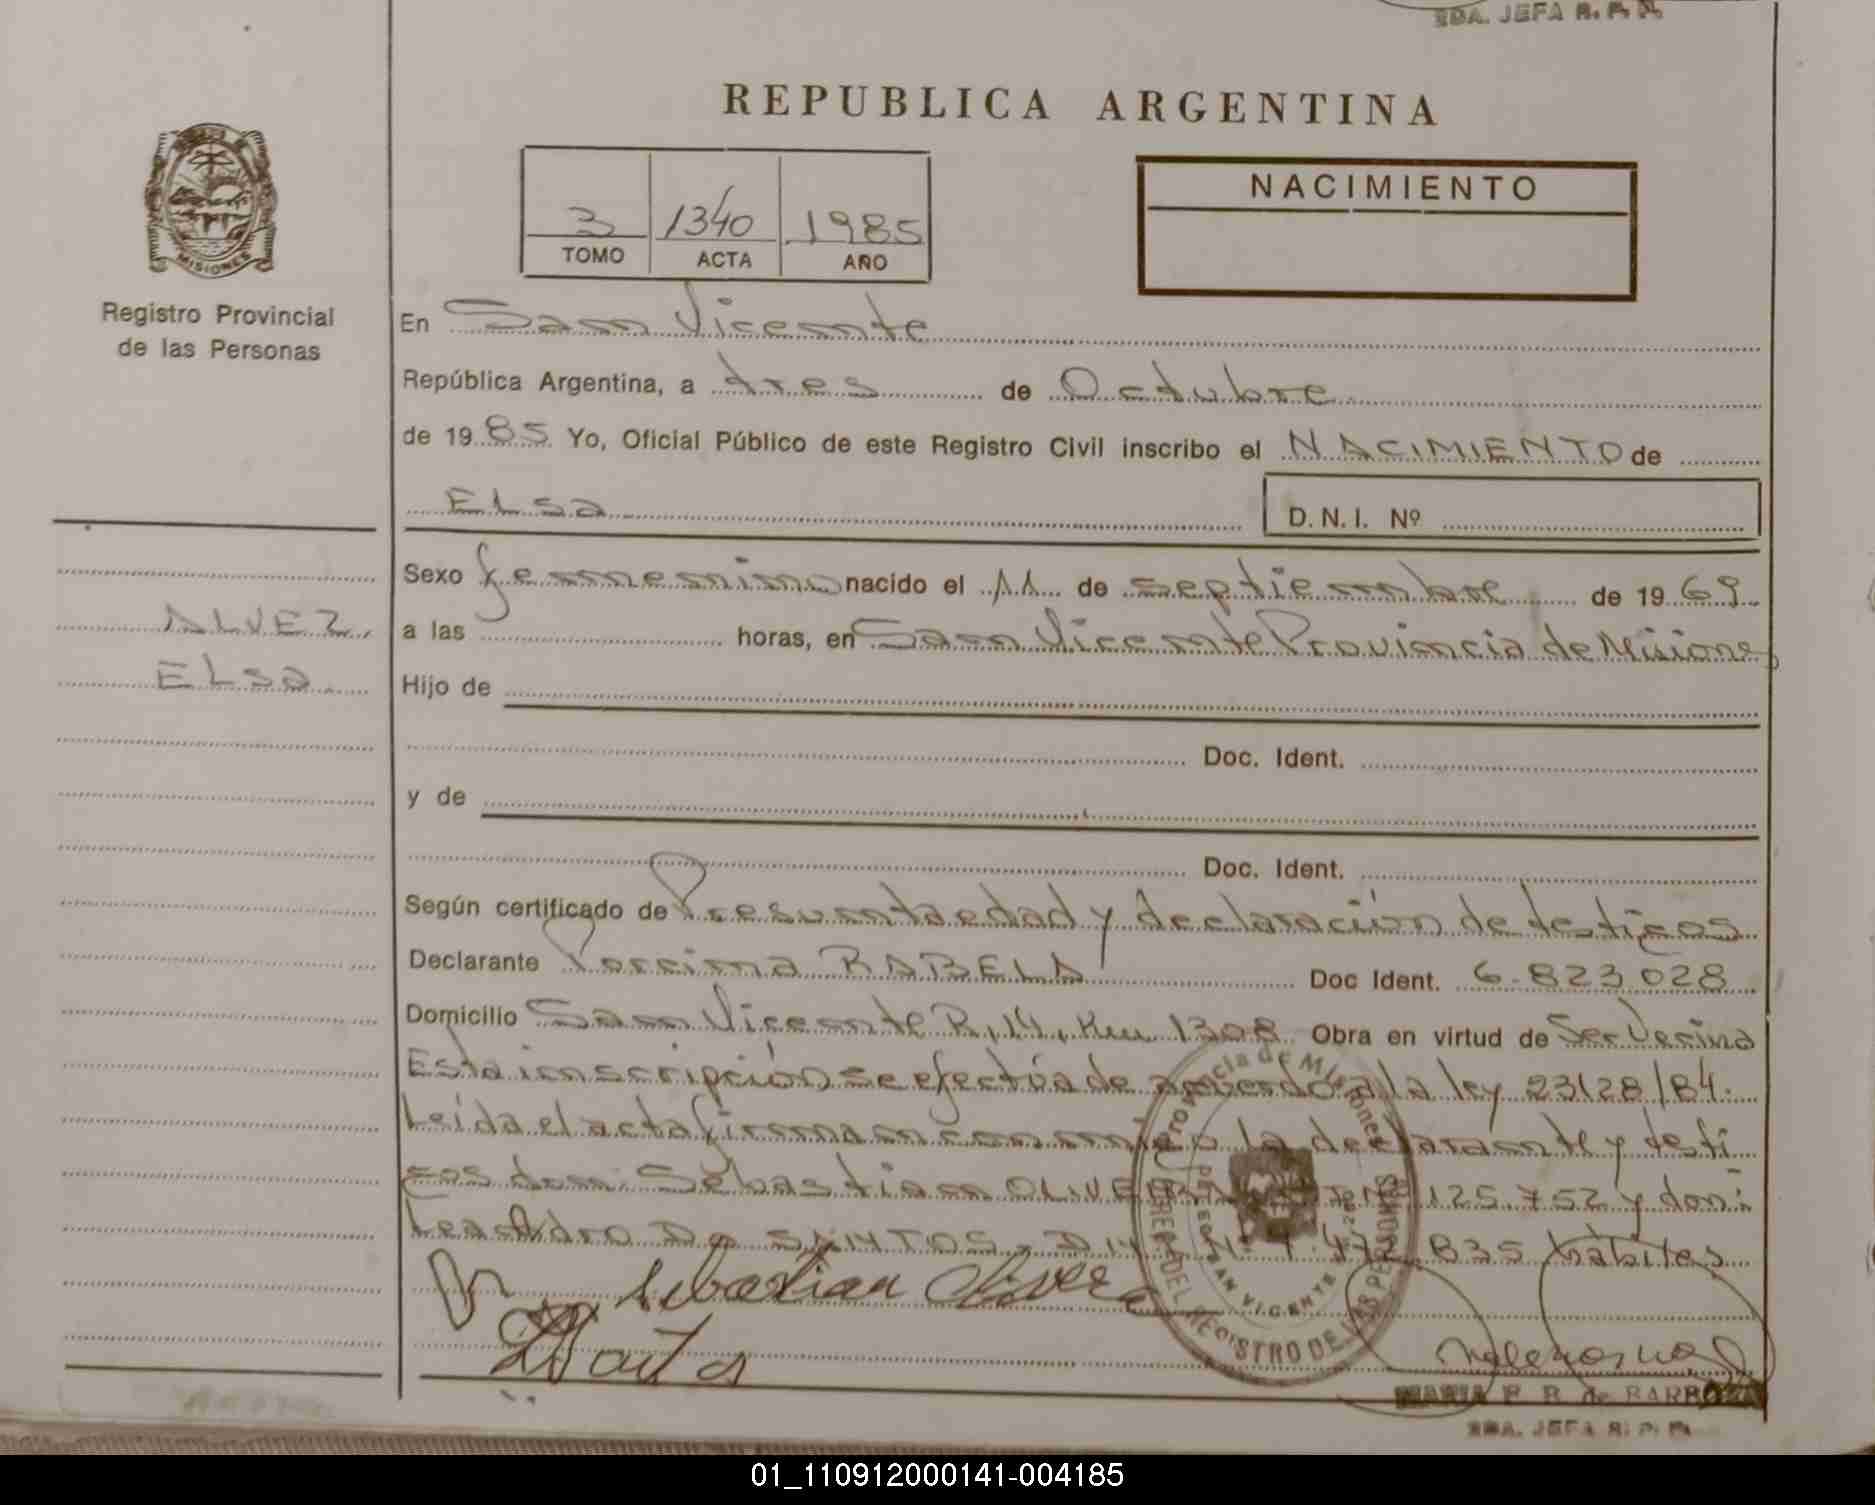 2DA. JEFA R. P. P.
REPUBLICA ARGENTINA
NACIMIENTO
3 1340 1985
TOMO ACTA AÑO
MISIONES
Registro Provincial
de las Personas
En San Vicente
República Argentina, a tres de Octubre
de 1985 Yo, Oficial Público de este Registro Civil inscribo el NACIMIENTO de
ELsa D.N.I. Nº
Sexo femenino nacido el 11 de septiembre de 1969
ALVEZ,
ELsa
a las horas, en San Vicente Provincia de Misiones
Hijo de
Doc. Ident.
y de
Doc. Ident.
Según certificado de Presunta edad y declaración de testigos
Declarante RABELA Doc Ident. 6.823 028
Domicilio San Vicente R, 14, Km 1308 Obra en virtud de Ser Vecina
Esta inscripción se efectúa de acuerdo a la ley 23128/84.
Leída el acta firman conmigo la declarante y testi
gos don: Sebastian OLIVERA 125.752 y don:
Leandro Do SANTOS D N Nº 7.472.835 hábiles
Sebastian Olivera
Provincia de Misiones
SAN VICENTE
REP. DEL REGISTRO DE LAS PERSONAS
MARIA E. B. de BARBOZA
2DA. JEFA R. P. P.
01_110912000141-004185